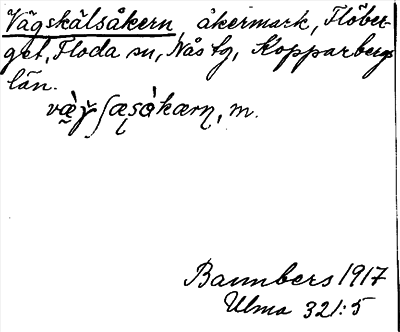 Vägskälsåkern, åkermark, Flöber-
get, Floda sn, Nås tg, Kopparbergs
län.
m.
Bannbers 1917
Ulma 321:5